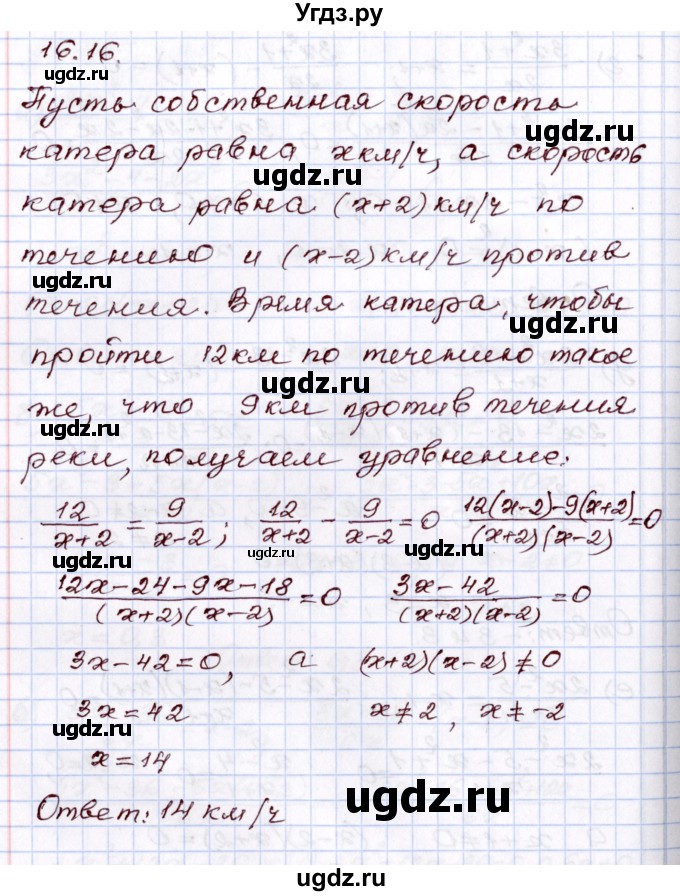 Угдз.ру
16.16.
Пусть собственная скорость
катера равна х км/ч, а скорость
катера равна (х+2) км/ч по
течению и (х-2) км/ч против
течения. Время катера, чтобы
пройти 12 км по течению такое
же, что 9 км против течения
реки, получаем уравнение:
12/(х+2) = 9/(х-2); 12/(х+2) - 9/(х-2) = 0 (12(х-2)-9(х+2))/((х+2)(х-2)) = 0
(12х-24-9х-18)/((х+2)(х-2)) = 0 (3х-42)/((х+2)(х-2)) = 0
3х-42=0, а (х+2)(х-2)≠0
3х=42 х≠2, х≠-2
х=14
Ответ: 14 км/ч
ugdz.ru
ugdz.ru
ugdz.ru
ugdz.ru
ugdz.ru
ugdz.ru
ugdz.ru
ugdz.ru
ugdz.ru
ugdz.ru
ugdz.ru
ugdz.ru
ugdz.ru
ugdz.ru